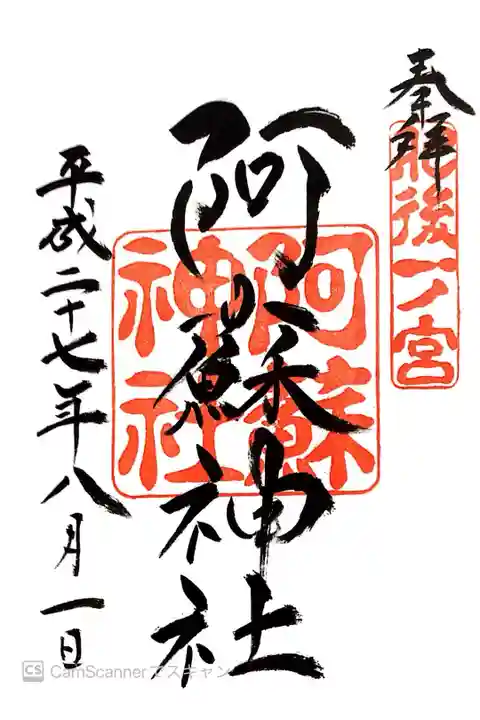 奉拝
肥後一ノ宮
阿蘇神社
阿蘇神社
平成二十七年八月一日
CS CamScannerでスキャン